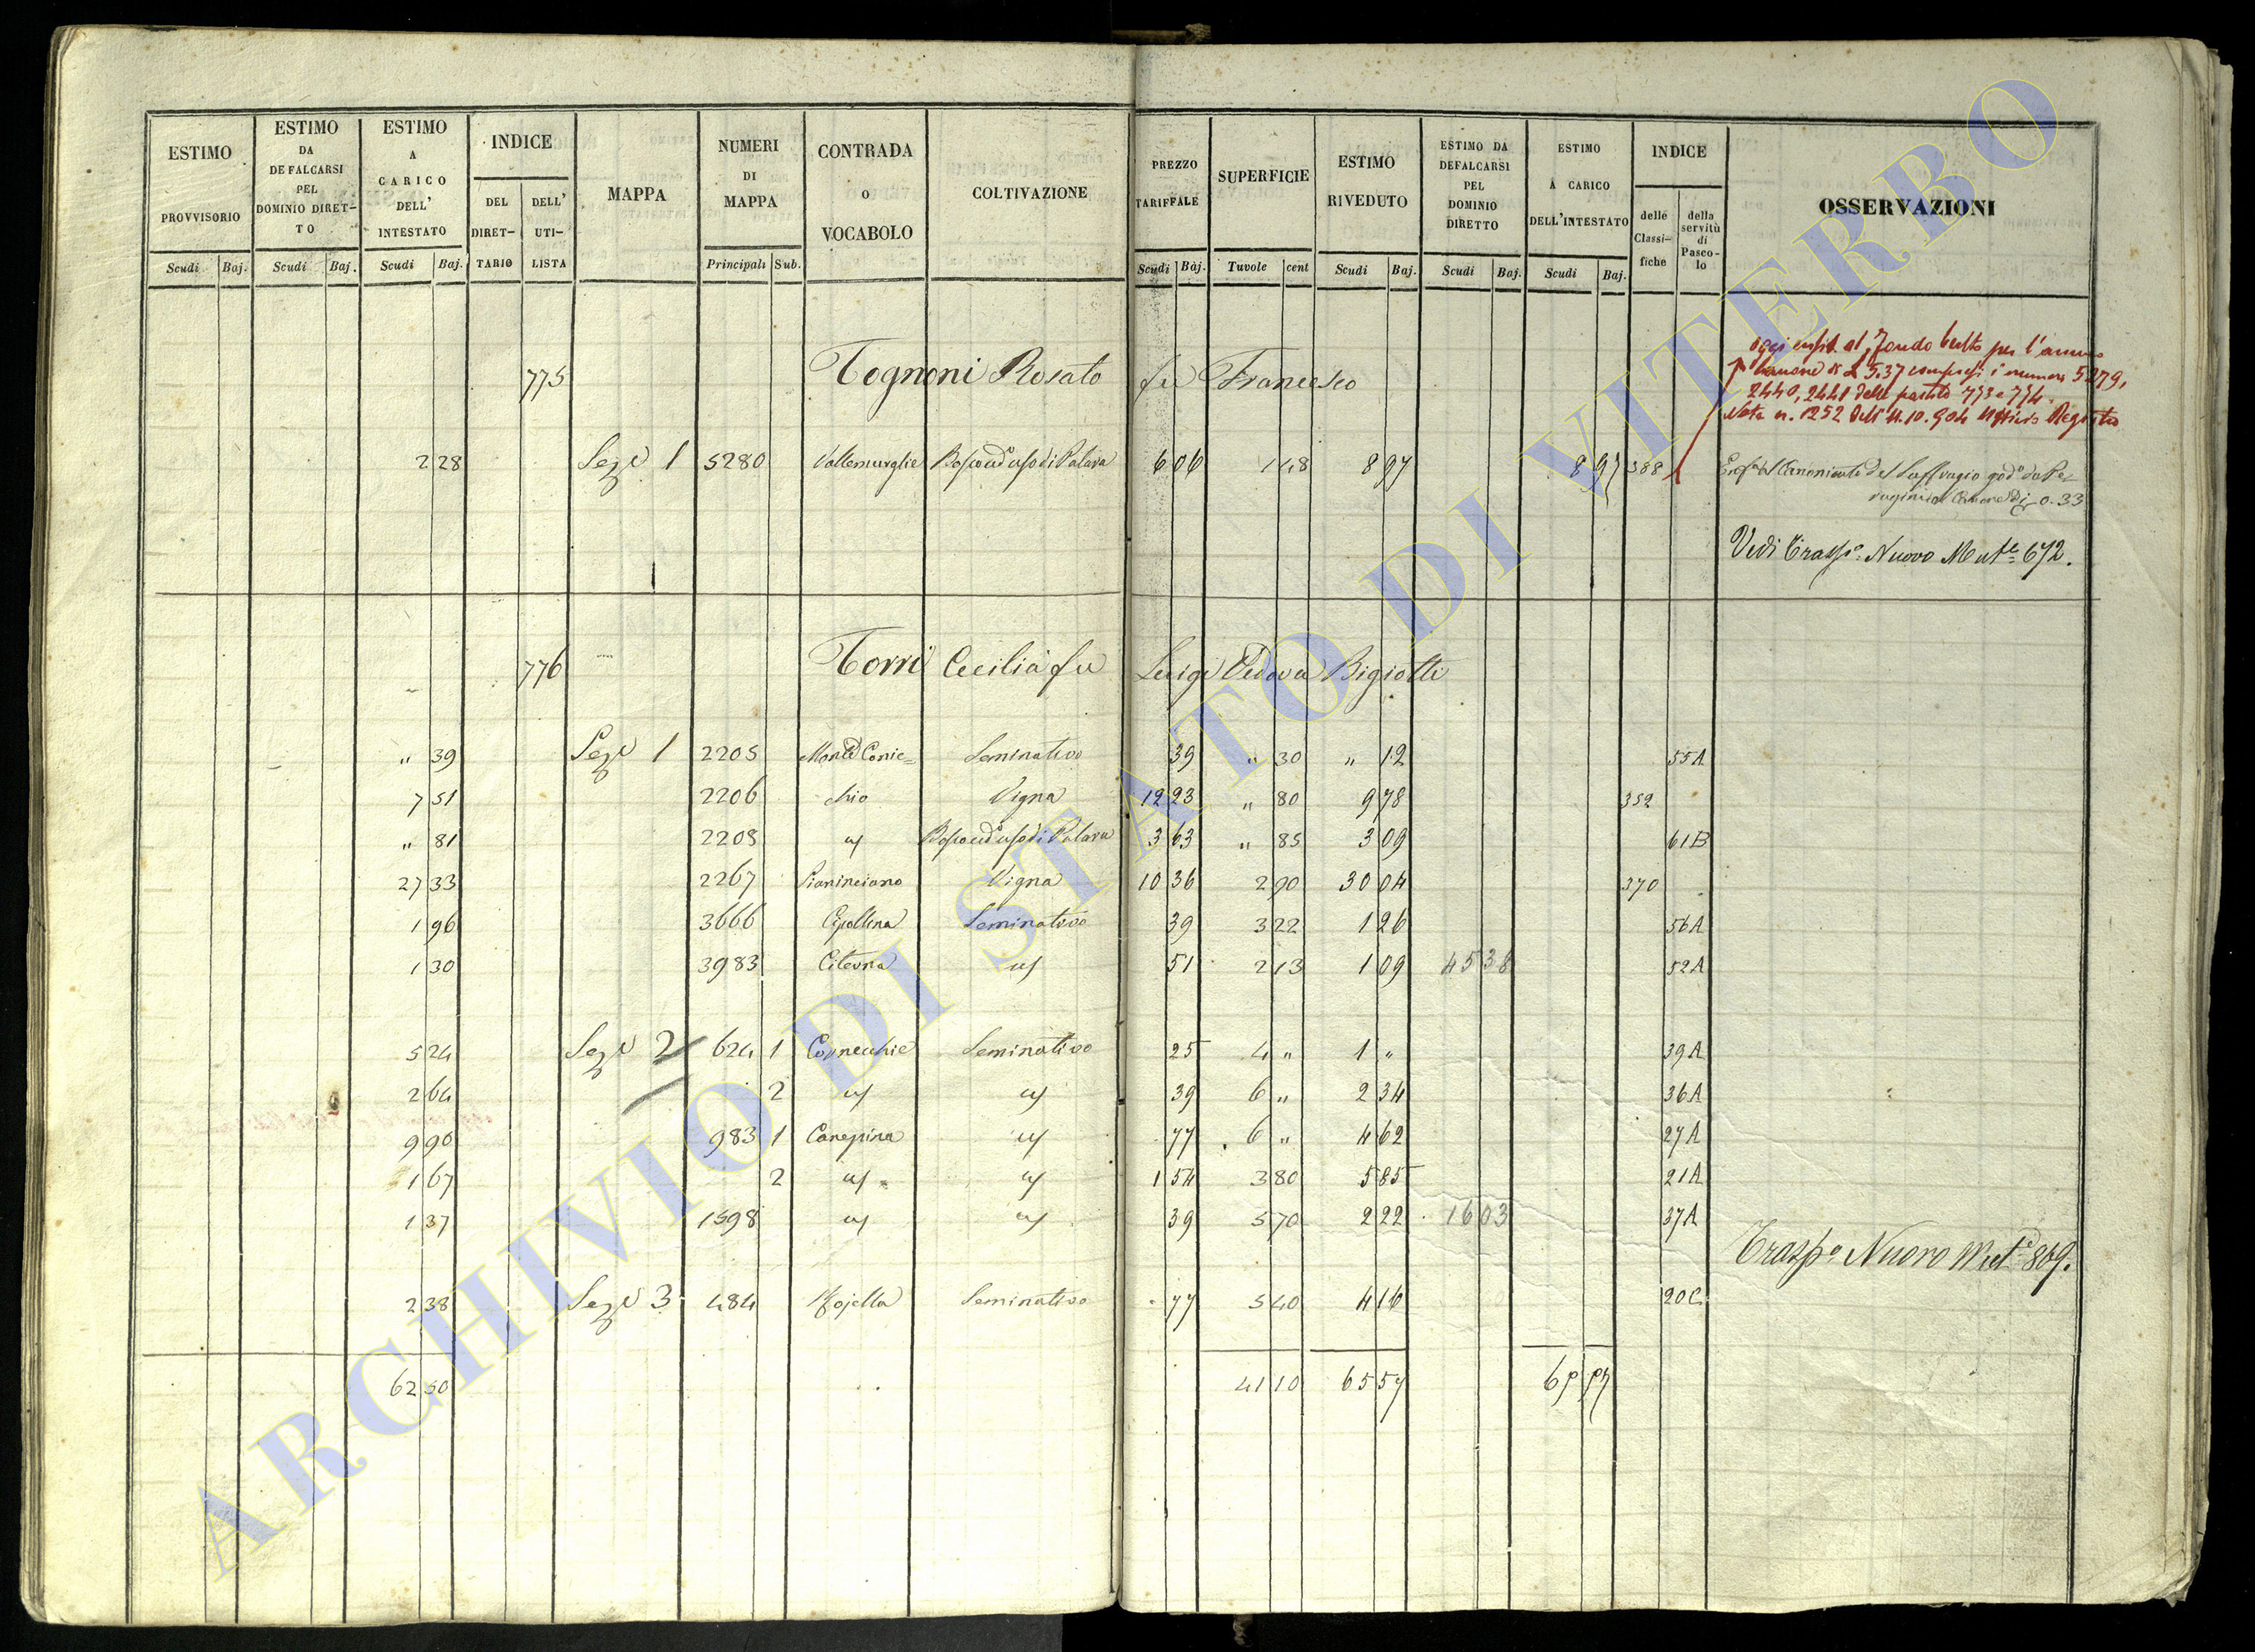 ESTIMO PROVVISORIO Scudi Baj.
ESTIMO DA DEFALCARSI PEL DOMINIO DIRET-TO Scudi Baj.
ESTIMO A CARICO DELL' INTESTATO Scudi Baj.
INDICE DEL DIRET-TARIO DELL' UTI-LISTA
MAPPA
NUMERI DI MAPPA Principali Sub.
CONTRADA o VOCABOLO
COLTIVAZIONE
PREZZO TARIFFALE Scudi Baj.
SUPERFICIE Tavole cent
ESTIMO RIVEDUTO Scudi Baj.
ESTIMO DA DEFALCARSI PEL DOMINIO DIRETTO Scudi Baj.
ESTIMO A CARICO DELL'INTESTATO Scudi Baj.
INDICE delle Classi-fiche della servitù di Pasco-lo
OSSERVAZIONI
775 Tognoni Rosato fu Francesco
oggi al fondo per l'annuo
5.37 i numeri 5279,
2440, 2441 delle partite 773 e 774.
Nota n. 1252 dell' 11.10.904 Registro
2 28 Seze 1 5280 Vallemuraglie Bosco ad uso di Palara 6 06 1 48 8 97 8 97 388
del Suffragio
Canone Di 0.33
Vedi Traspo Nuovo Mutle 672.
776 Torri Cecilia fu Luigi Vedova Bigiotti
" 39 Seze 1 2205 Monte Cornic= Seminativo 39 " 30 " 12 55A
7 51 2206 chio Vigna 12 23 " 80 9 78 352
" 81 2208 " Bosco ad uso di Palara 3 63 " 85 3 09 61B
27 33 2267 Pianinciano Vigna 10 36 2 90 30 04 370
1 96 3666 Cipollina Seminativo 39 3 22 1 26 56A
1 30 3983 Citerna " 51 2 13 1 09 45 38 52A
5 24 Seze 2 624 1 Cornecchie Seminativo 25 4 " 1 " 39A
2 64 2 " " 39 6 " 2 34 36A
9 90 983 1 Canepina " 77 6 " 4 62 27A
1 67 2 " " 1 54 3 80 5 85 21A
1 37 1598 " " 39 5 70 2 22 16 03 37A
Traspo Nuovo Mute 869.
2 38 Seze 3 484 Mojella Seminativo 77 5 40 4 16 20C
62 50 41 10 65 57
ARCHIVIO DI STATO DI VITERBO